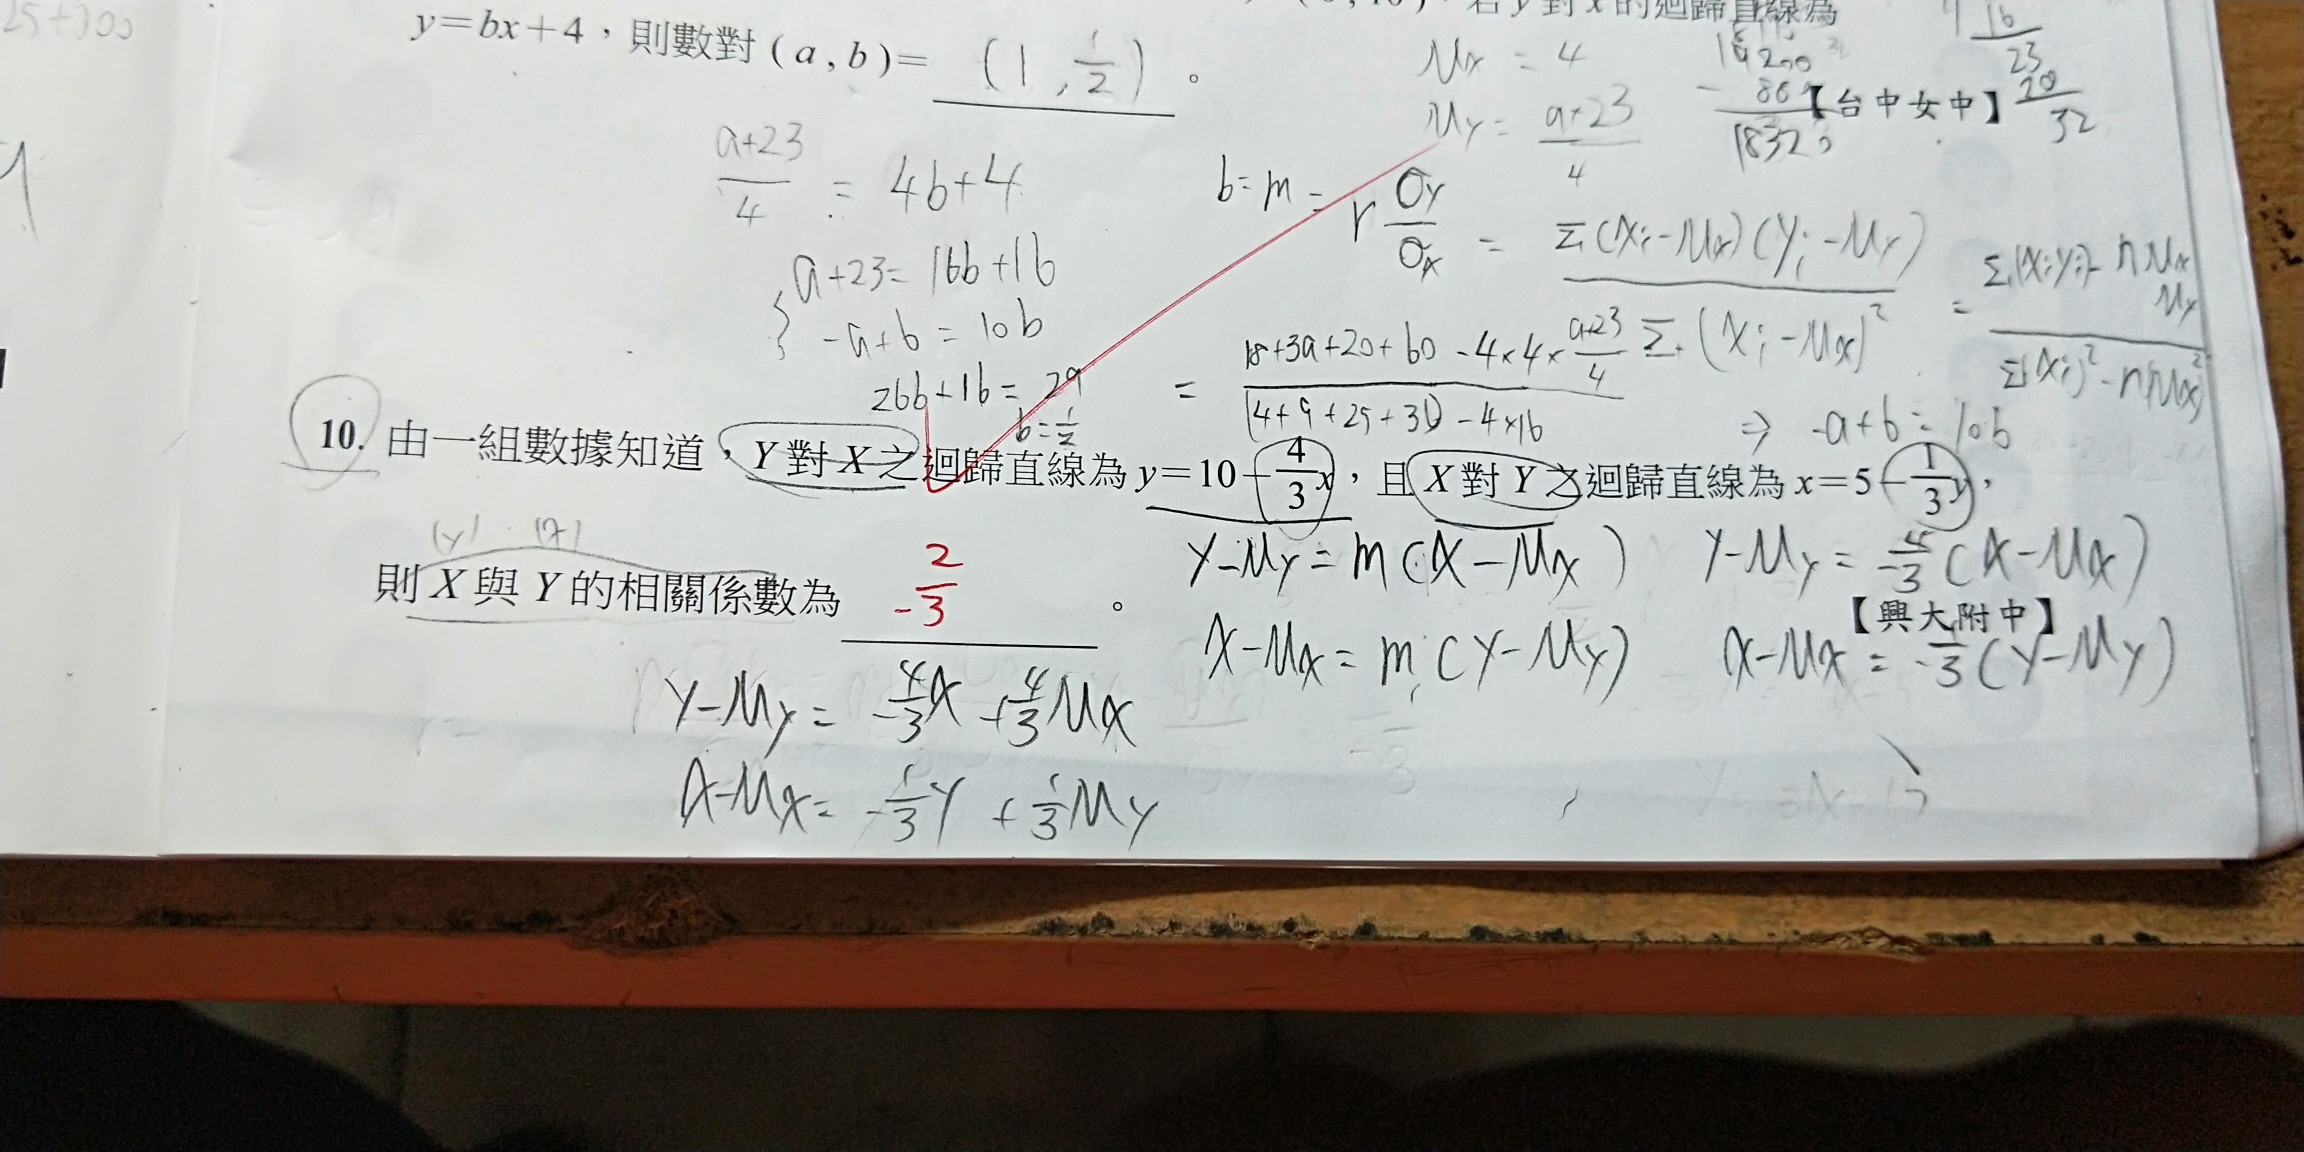 25+300
若 y 對 x 的迴歸直線為
y=bx+4，則數對 (a, b)= (1, 1/2) 。
μx = 4
μy = a+23/4
16
23
20
32
【台中女中】
a+23/4 = 4b+4
b=m= r σy/σx = Σ(xi-μx)(yi-μy)/Σ(xi-μx)² = Σ(xiyi)-nμxμy/Σ(xi)²-n(μx)²
{ a+23=16b+16
-a+6 = 10b
= 18+3a+20+60-4×4×a+23/4 / (4+9+25+36)-4×16
⇒ -a+6=10b
26b+16=29
b=1/2
10. 由一組數據知道，Y 對 X 之迴歸直線為 y=10-4/3x，且 X 對 Y 之迴歸直線為 x=5-1/3y，
(y) (x)
則 X 與 Y 的相關係數為 -2/3 。
【興大附中】
y-μy=m(x-μx) y-μy=-4/3(x-μx)
x-μx=m(y-μy) x-μx=-1/3(y-μy)
y-μy=-4/3x+4/3μx
x-μx=-1/3y+1/3μy